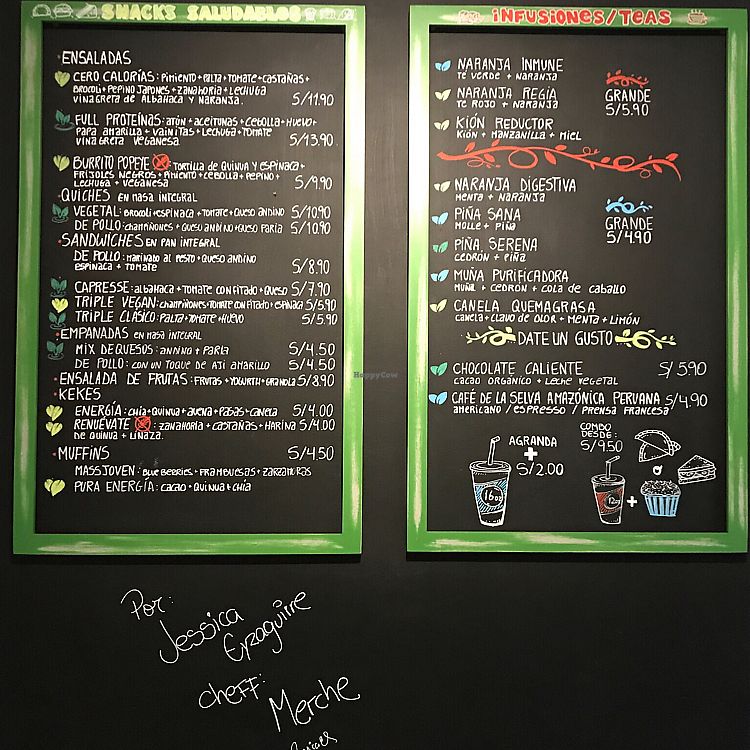 SNACKS SALUDABLES
• ENSALADAS
CERO CALORÍAS: PIMIENTO + PALTA + TOMATE + CASTAÑAS +
BROCOLI + PEPINO JAPONES + ZANAHORIA + LECHUGA
VINAGRETA DE ALBAHACA Y NARANJA. S/11.90
FULL PROTEÍNAS: ATÚN + ACEITUNAS + CEBOLLA + HUEVO +
PAPA AMARILLA + VAINITAS + LECHUGA + TOMATE
VINAGRETA VEGANESA. S/13.90
BURRITO POPEYE: TORTILLA DE QUINUA Y ESPINACA +
FRIJOLES NEGROS + PIMIENTO + CEBOLLA + PEPINO +
LECHUGA + VEGANESA S/9.90
• QUICHES EN MASA INTEGRAL
VEGETAL: BROCOLI + ESPINACA + TOMATE + QUESO ANDINO S/10.90
DE POLLO: CHAMPIÑONES + QUESO ANDINO + QUESO PARIA S/10.90
• SANDWICHES EN PAN INTEGRAL
DE POLLO: MARINADO AL PESTO + QUESO ANDINO
ESPINACA + TOMATE S/8.90
CAPRESSE: ALBAHACA + TOMATE CONFITADO + QUESO S/7.90
TRIPLE VEGAN: CHAMPIÑONES + TOMATE CONFITADO + ESPINACA S/5.90
TRIPLE CLÁSICO: PALTA + TOMATE + HUEVO S/5.90
• EMPANADAS EN MASA INTEGRAL
MIX DE QUESOS: ANDINO + PARIA S/4.50
DE POLLO: CON UN TOQUE DE AJI AMARILLO S/4.50
• ENSALADA DE FRUTAS: FRUTAS + YOGURTH + GRANOLA S/8.90
• KEKES
ENERGÍA: CHIA + QUINUA + AVENA + PASAS + CANELA S/4.00
RENUÉVATE: ZANAHORIA + CASTAÑAS + HARINA S/4.00
DE QUINUA + LINAZA.
• MUFFINS S/4.50
MASSJOVEN: BLUEBERRIES + FRAMBUESAS + ZARZAMORAS
PURA ENERGÍA: CACAO + QUINUA + CHÍA
INFUSIONES/TEAS
NARANJA INMUNE
TÉ VERDE + NARANJA
NARANJA REGÍA
TE ROJO + NARANJA
KIÓN REDUCTOR
KIÓN + MANZANILLA + MIEL
GRANDE
S/5.90
NARANJA DIGESTIVA
MENTA + NARANJA
PIÑA SANA
MOLLE + PIÑA
PIÑA SERENA
CEDRÓN + PIÑA
MUÑA PURIFICADORA
MUÑA + CEDRÓN + COLA DE CABALLO
CANELA QUEMAGRASA
CANELA + CLAVO DE OLOR + MENTA + LIMÓN
GRANDE
S/4.90
DATE UN GUSTO
CHOCOLATE CALIENTE S/5.90
CACAO ORGÁNICO + LECHE VEGETAL
CAFÉ DE LA SELVA AMAZÓNICA PERUANA S/4.90
AMERICANO / ESPRESSO / PRENSA FRANCESA
AGRANDA
+
S/2.00
16oz
COMBO
DESDE:
S/9.50
12oz
+
o
Por:
Jessica
Eyzaguirre
cheff:
Merche
HappyCow